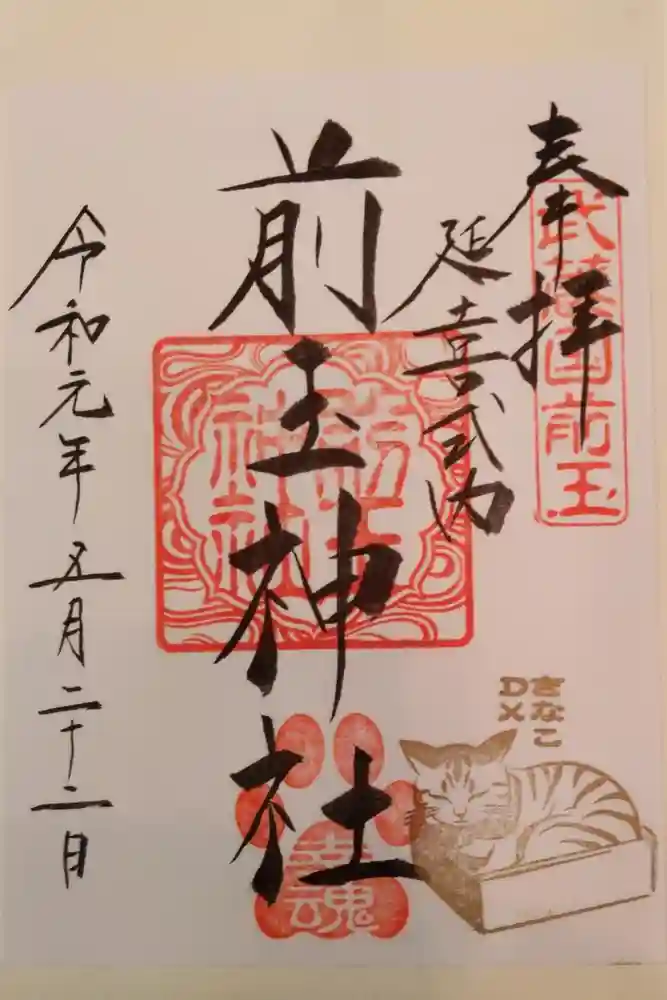 奉拝
武蔵国前玉
延喜式内
前玉神社
前玉
神社
幸魂
きなこ
DX
令和元年五月二十二日